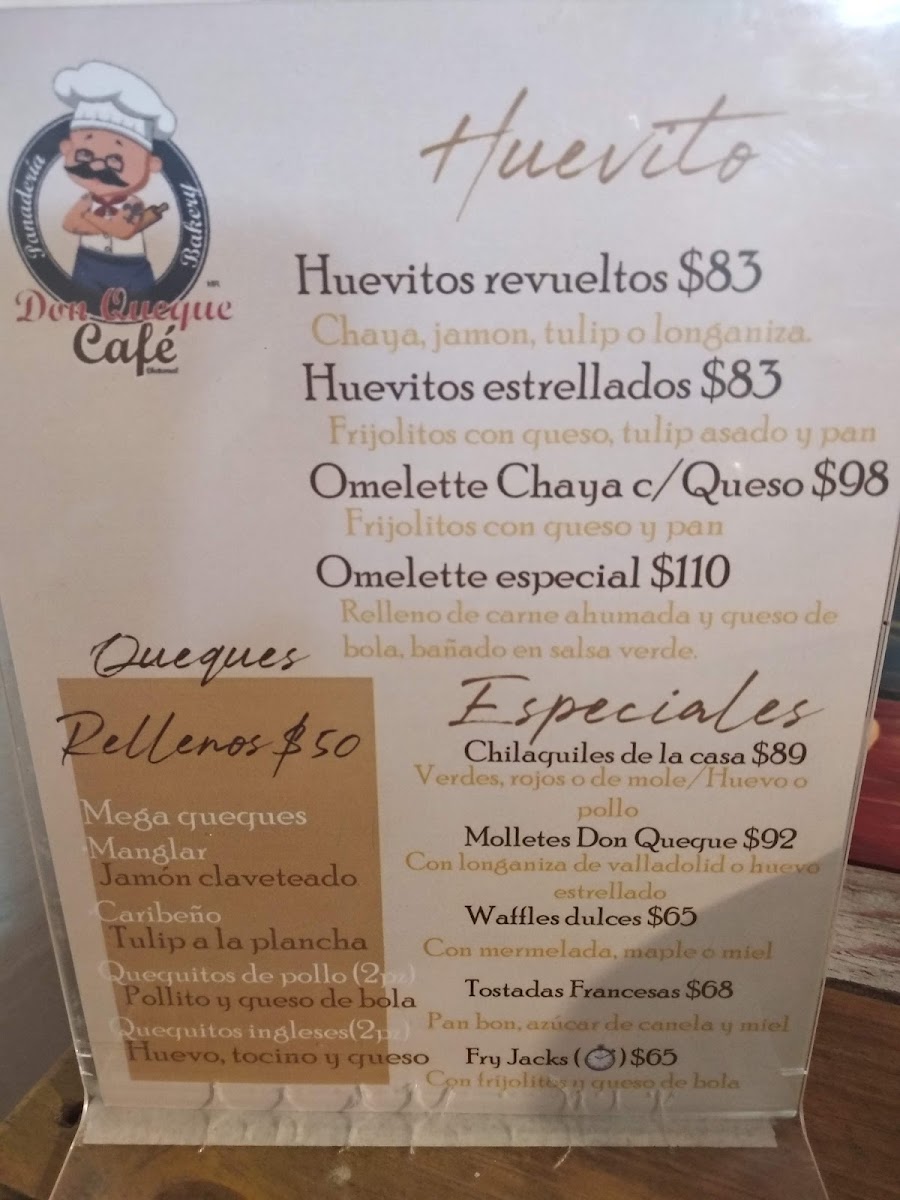 Panadería
Bakery
Don Queque
Café
Chetumal
Huevito
Huevitos revueltos $83
Chaya, jamon, tulip o longaniza.
Huevitos estrellados $83
Frijolitos con queso, tulip asado y pan
Omelette Chaya c/Queso $98
Frijolitos con queso y pan
Omelette especial $110
Relleno de carne ahumada y queso de
bola, bañado en salsa verde.
Queques
Rellenos $50
Mega queques
Manglar
Jamón claveteado
Caribeño
Tulip a la plancha
Quequitos de pollo (2pz)
Pollito y queso de bola
Quequitos ingleses(2pz)
Huevo, tocino y queso
Especiales
Chilaquiles de la casa $89
Verdes, rojos o de mole/Huevo o
pollo
Molletes Don Queque $92
Con longaniza de valladolid o huevo
estrellado
Waffles dulces $65
Con mermelada, maple o miel
Tostadas Francesas $68
Pan bon, azúcar de canela y miel
Fry Jacks (⏱) $65
Con frijolitos y queso de bola